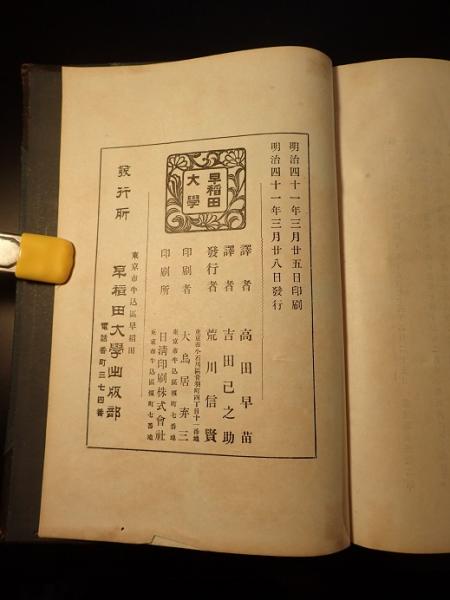 明治四十一年三月廿五日印刷
明治四十一年三月廿八日發行
早稲田大學
譯者 高田早苗
譯者 吉田己之助
發行者 荒川信賢
東京市小石川區音羽町四丁目十一番地
印刷者 大鳥居弃三
東京市牛込區榎町七番地
印刷所 日清印刷株式會社
東京市牛込區榎町七番地
發行所
東京市牛込區早稲田
早稲田大學出版部
電話番町三七四番